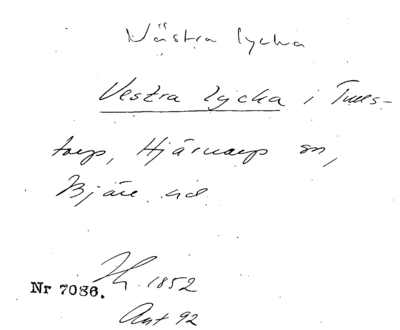 Västra lycka
Vestra lycka i Tues-
torp, Hjärnarp sn,
Bjäre hd
Nr 7086. 1852
Ant 92